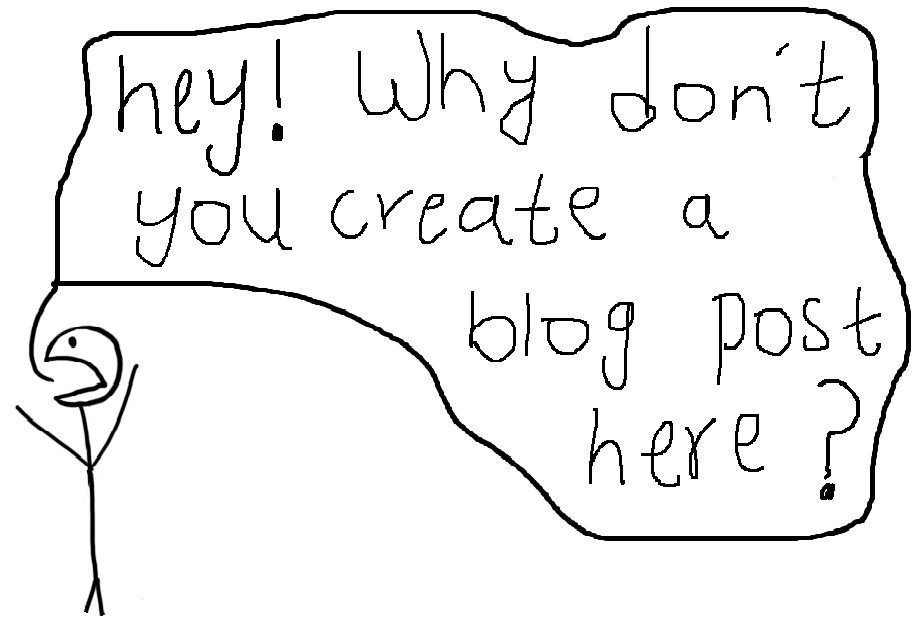 hey! Why don't
you create a
blog post
here?